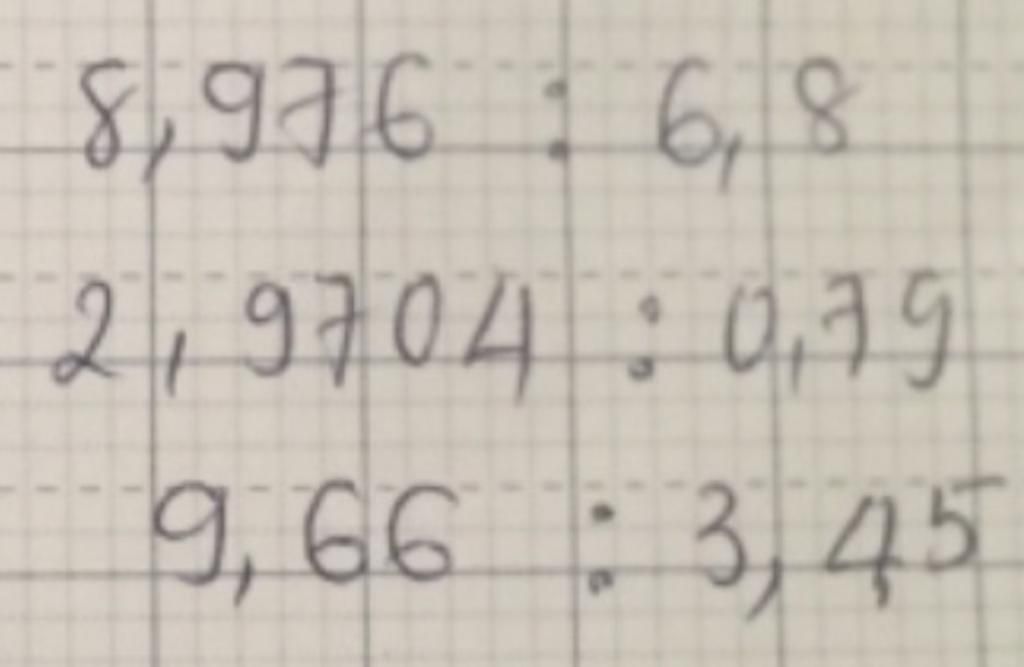 8,976 : 6,8
2,9704 : 0,79
9,66 : 3,45